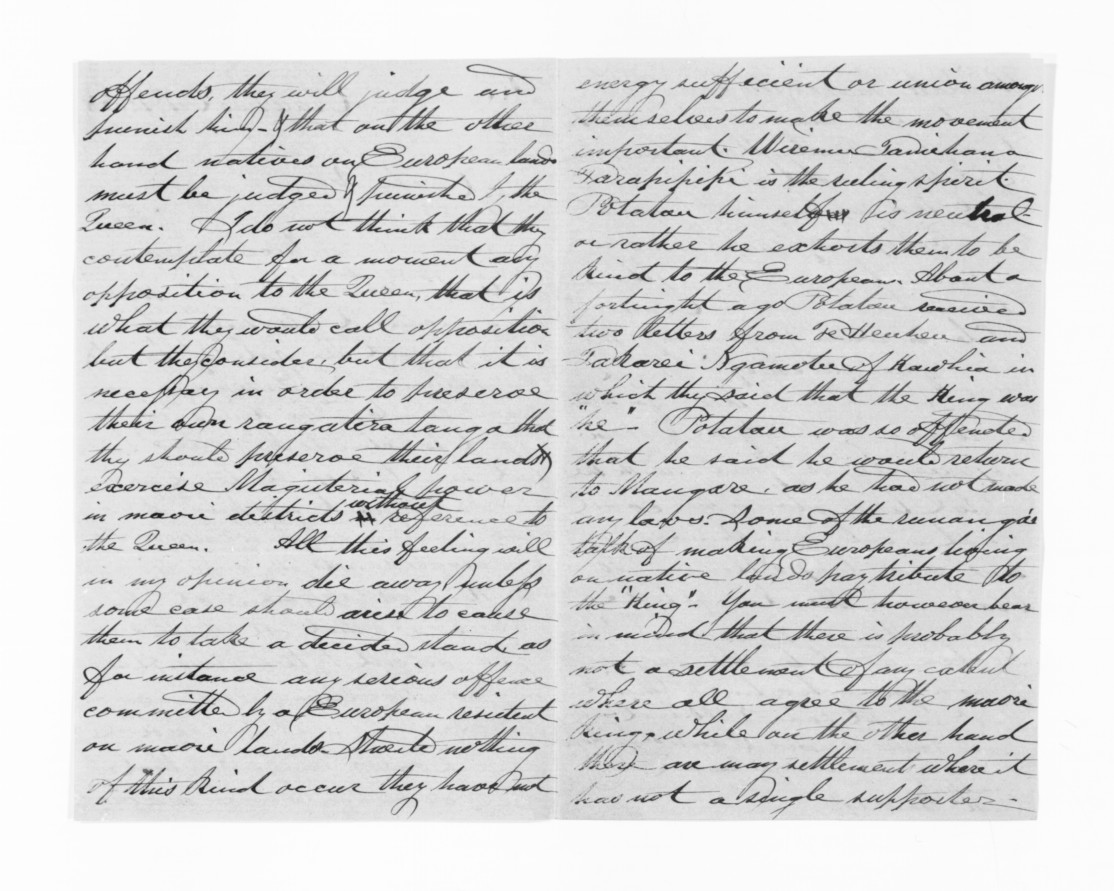 offends, they will judge and
punish him - & that on the other
hand natives on European lands
must be judged & punished by the
Queen. I do not think that they
contemplate for a moment any
opposition to the Queen, that is
what they would call opposition
but they consider, but that it is
necessary in order to preserve
their own rangatira tanga that
they should preserve their lands &
exercise Magisterial power
in maori districts without reference to
the Queen. All this feeling will
in my opinion die away unless
some case should arise to cause
them to take a decided stand, as
for instance any serious offence
committed by a European resident
on maori lands. Should nothing
of this kind occur they have not
energy sufficient or union among
themselves to make the movement
important. Wiremu Tamehana
Tarapipipi is the ruling spirit
Potatau himself is neutral -
or rather he exhorts them to be
kind to the Europeans. About a
fortnight ago Potatau received
two letters from Te Heuheu and
Takerei Ngamotu of Kawhia in
which they said that the King was
"he" - Potatau was so offended
that he said he would return
to Mangare, as he had not made
any laws. Some of the runangas
talk of making Europeans living
on native lands pay tribute to
the "King" - You must however bear
in mind that there is probably
not a settlement of any extent
where all agree to the maori
King, while on the other hand
there are many settlement where it
has not a single supporter -